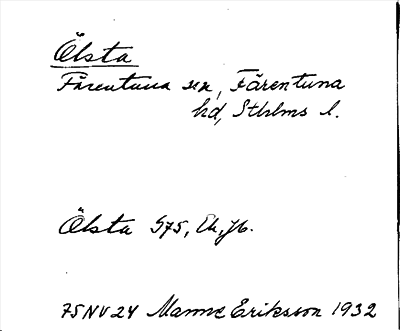 Ölsta
Färentuna sn, Färentuna
hd, Sthlms l.
Ölsta 575, Ek, Jb.
75NV24 Manne Eriksson 1932